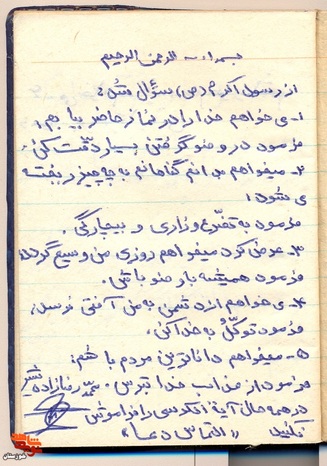 بسم الله الرحمن الرحیم
از رسول اکرم (ص) سؤال شد:
۱- می خواهم خدا را در نماز حاضر بیابم،
فرمود در وضو گرفتن بسیار دقّت کن.
۲- میخواهم بدانم گناهانم به چه چیز ریخته
می شود؛
فرمود به تضرّع و زاری و بیچارگی.
۳- عرض کرد میخواهم روزی من وسیع گردد،
فرمود همیشه با وضو باش.
۴- می خواهم از دشمن به من آفتی نرسد،
فرمود توکّل به خدا کن.
۵- میخواهم داناترین مردم باشم؛
فرمود از عذاب خدا بترس. رضازاده
در همه حال آیة الکرسی را فراموش
نکنید «التماس دعا»
خوزستان